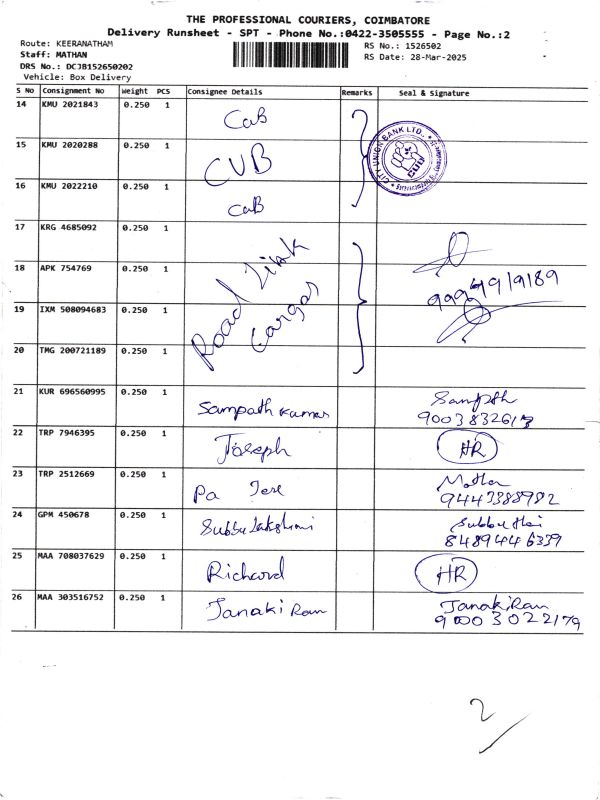 THE PROFESSIONAL COURIERS, COIMBATORE
Delivery Runsheet - SPT - Phone No.:0422-3505555 - Page No.:2
Route: KEERANATHAM
Staff: MATHAN
DRS No.: DCJB152650202
Vehicle: Box Delivery
RS No.: 1526502
RS Date: 28-Mar-2025
S No Consignment No Weight PCS Consignee Details Remarks Seal & Signature
14 KMU 2021843 0.250 1 CUB
CITY UNION BANK LTD.,
CUB
15 KMU 2020288 0.250 1 CUB
16 KMU 2022210 0.250 1 CUB
17 KRG 4685092 0.250 1
18 APK 754769 0.250 1 Road Link
19 IXM 508094683 0.250 1 Cargos
20 TMG 200721189 0.250 1
21 KUR 696560995 0.250 1 Sampath Kumar Sampth
22 TRP 7946395 0.250 1 Joseph HR
23 TRP 2512669 0.250 1 Pa
9443388982
24 GPM 450678 0.250 1 Subbulakshmi
8489446339
25 MAA 708037629 0.250 1 Richard HR
26 MAA 303516752 0.250 1 Janaki Ram Janaki Ram
90003022179
2